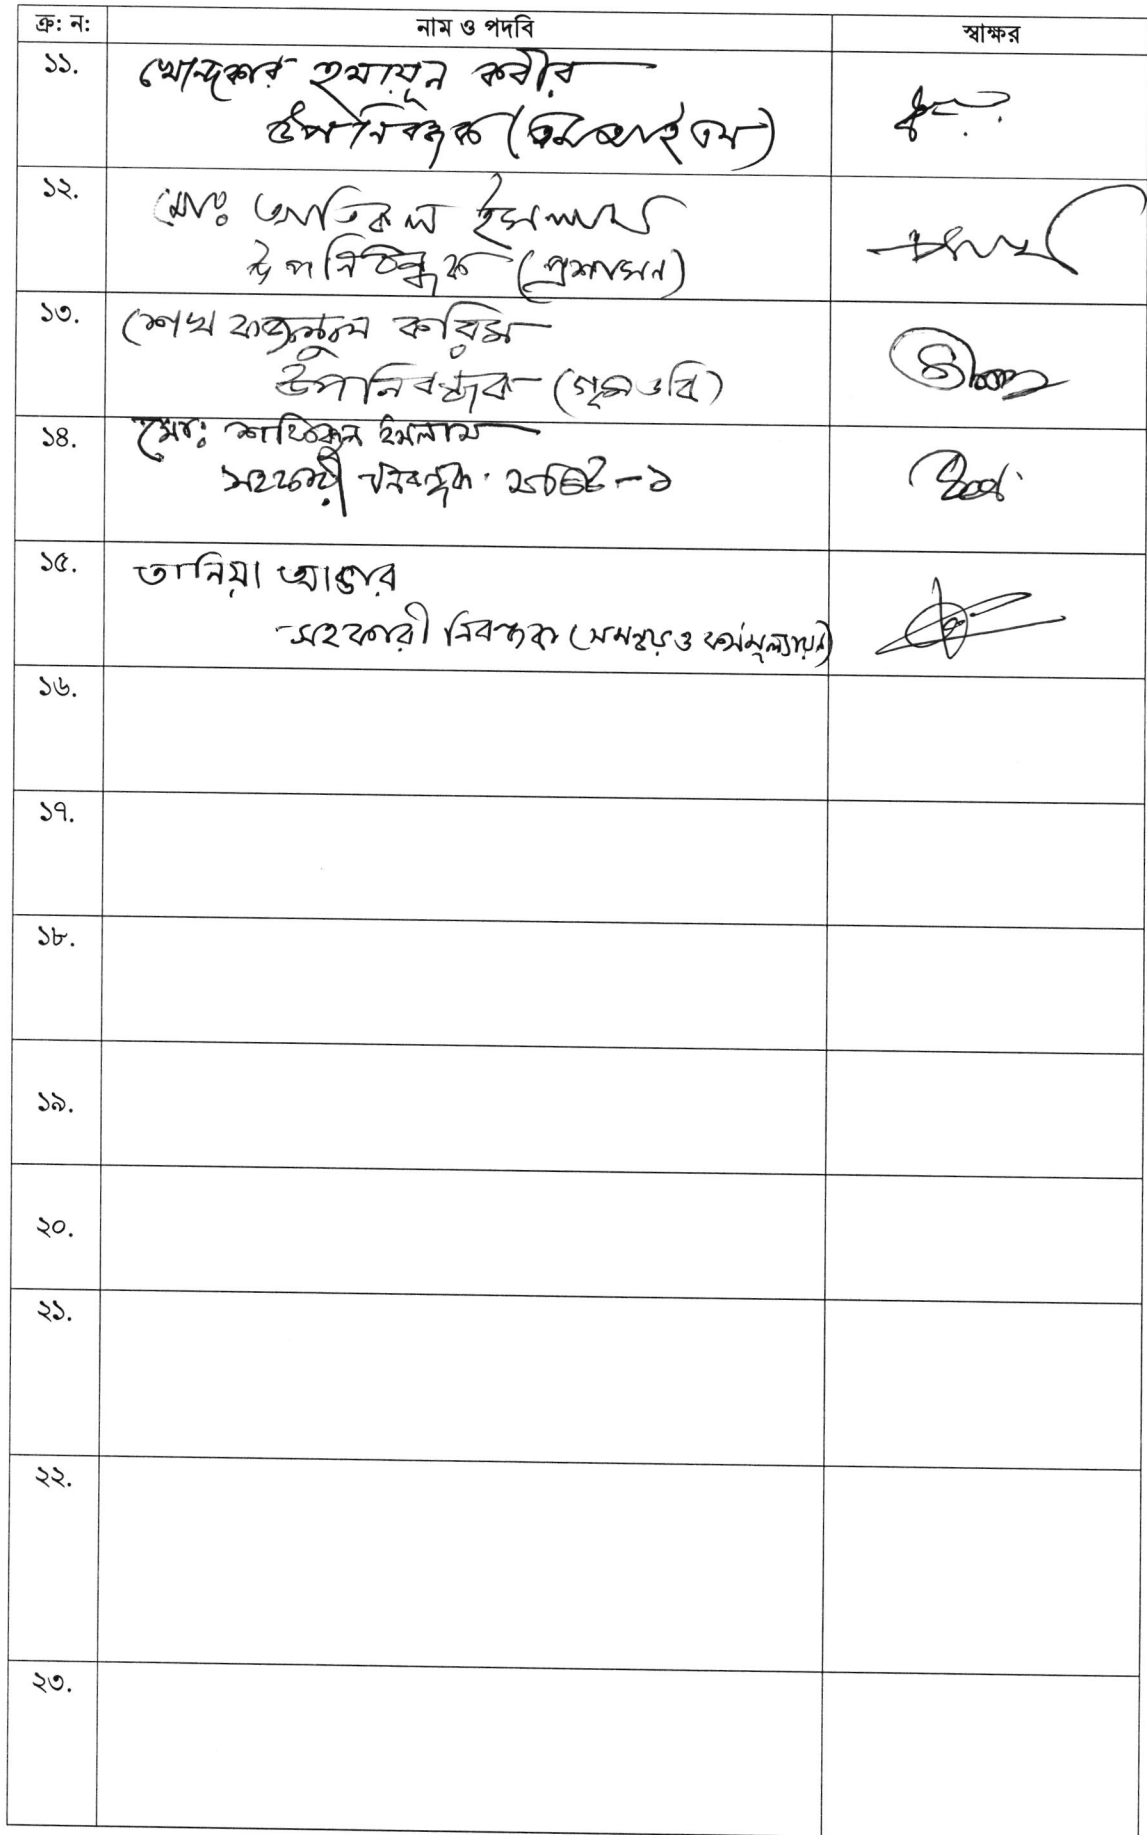 ক্র: ন: নাম ও পদবি স্বাক্ষর
১১. খোন্দকার হুমায়ূন কবীর
উপনিবন্ধক (এমআইএম)
১২. মোঃ আতিকুল ইসলাম
উপনিবন্ধক (প্রশাসন)
১৩. শেখ ফজলুল করিম
উপনিবন্ধক
১৪. মোঃ শফিকুল ইসলাম
সহকারী নিবন্ধক অডিট-১
১৫. তানিয়া আক্তার
সহকারী নিবন্ধক (সমন্বয় ও কর্মমূল্যায়ন)
১৬.
১৭.
১৮.
১৯.
২০.
২১.
২২.
২৩.